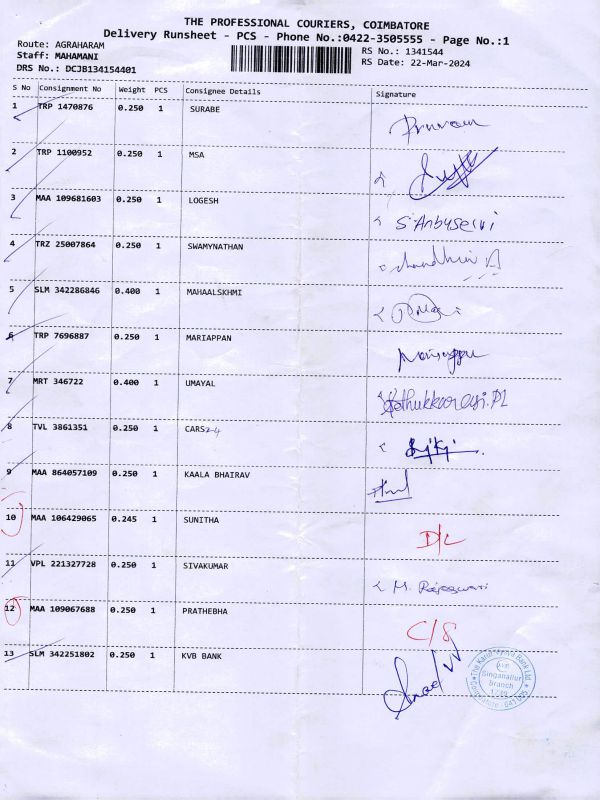 THE PROFESSIONAL COURIERS, COIMBATORE
Delivery Runsheet - PCS - Phone No.:0422-3505555 - Page No.:1
Route: AGRAHARAM RS No.: 1341544
Staff: MAHAMANI RS Date: 22-Mar-2024
DRS No.: DCJB134154401
S No Consignment No Weight PCS Consignee Details Signature
1 TRP 1470876 0.250 1 SURABE
2 TRP 1100952 0.250 1 MSA
3 MAA 109681603 0.250 1 LOGESH S.Anbuselvi
4 TRZ 25007864 0.250 1 SWAMYNATHAN
5 SLM 342286846 0.400 1 MAHAALSKHMI
6 TRP 7696887 0.250 1 MARIAPPAN
7 MRT 346722 0.400 1 UMAYAL
8 TVL 3861351 0.250 1 CARS24
9 MAA 864057109 0.250 1 KAALA BHAIRAV
10 MAA 106429065 0.245 1 SUNITHA D/L
11 VPL 221327728 0.250 1 SIVAKUMAR M. Rajeswari
12 MAA 109067688 0.250 1 PRATHEBHA C/S
13 SLM 342251802 0.250 1 KVB BANK
The Karur Vysya Bank Ltd.
Singanallur
Branch
Coimbatore - 641 005